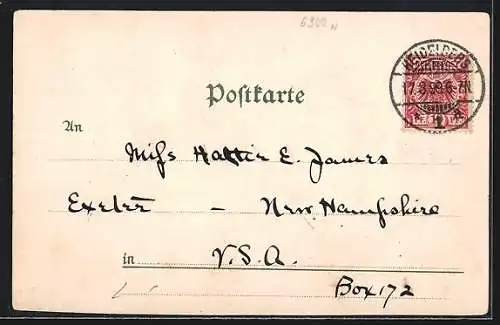 6900 N
HEIDELBERG
17.8.99.6-7N.
1.
Postkarte
An
Miss Hattie E. James
Exeter — New Hampshire
in U.S.A.
Box 172